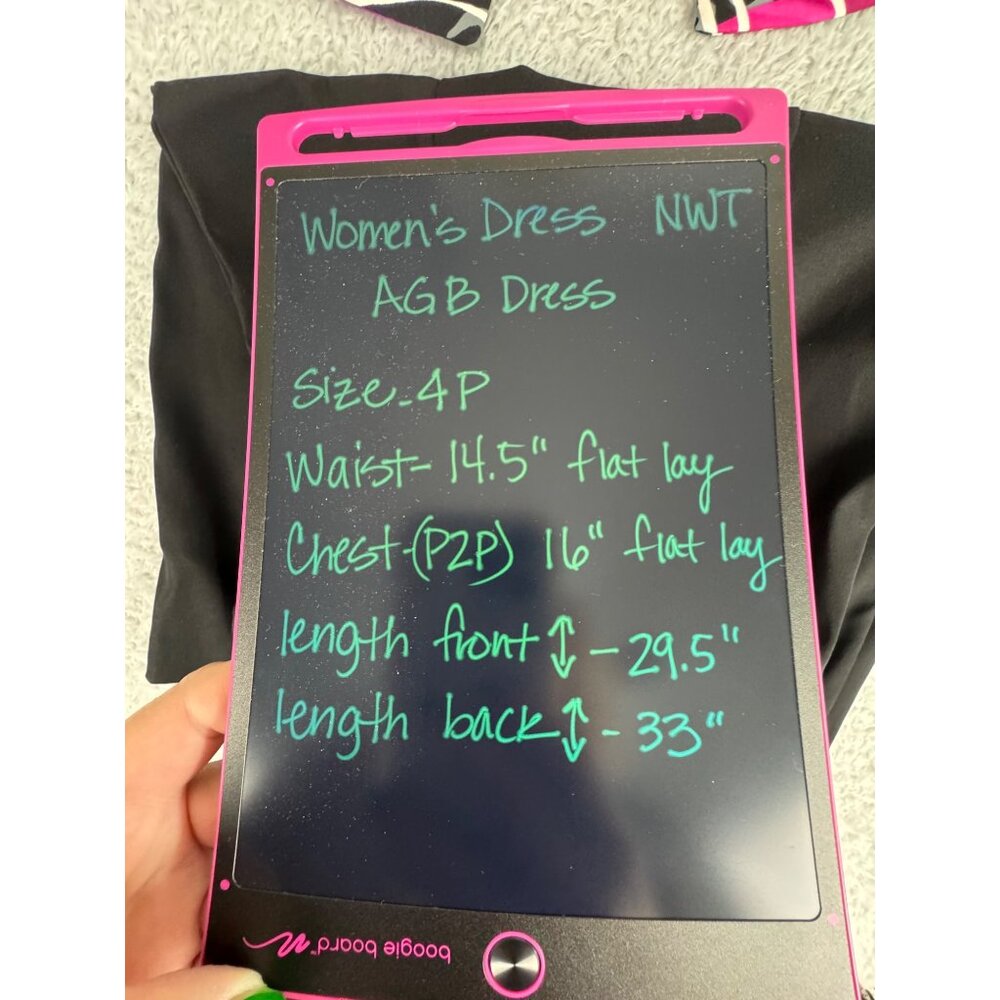 Women's Dress NWT
AGB Dress
Size-4P
Waist- 14.5" flat lay
Chest-(P2P) 16" flat lay
length front ↕ - 29.5"
length back ↕ - 33"
boogie board™